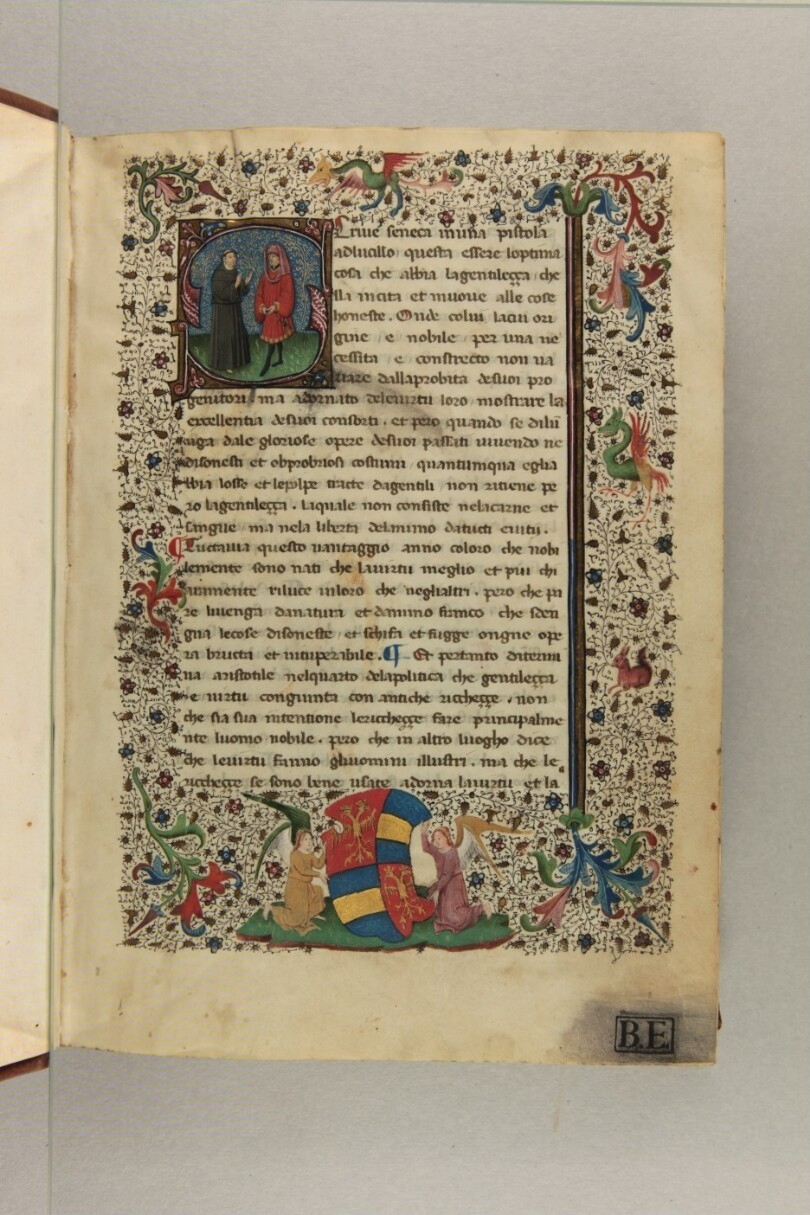 Scriue seneca inuna pistola
adlucillo questa essere loptima
cosa che abbia lagentileçça che
lla incita et muoue alle cose
honeste. Onde colui lacui ori
gine e nobile per una ne
cessita e constrecto non ua
stare dallaprobita desuoi pro
genitori ma adornato deleuirtu loro mostrare la
excellentia desuoi consorti. et pero quando se dilu
nga dale gloriose opere desuoi passati uiuendo ne
disonesti et obprobriosi costumi quantumqua eglia
bbia losse et lepolpe tracte dagentili non ritiene pe
ro lagentileçça. laquale non consiste nelacarne et
sangue ma nela liberta delanimo datucti euitii.
¶ Tuctauia questo uantaggio anno coloro che nobi
lemente sono nati che lauirtu meglio et piu chi
aramente riluce inloro che neglialtri. pero che pa
re liuenga danatura et danimo franco che sden
gna lecose disoneste et schifa et fugge ongne ope
ra bructa et uituperabile. ¶ Et pertanto determi
na aristotile nelquarto delapolitica che gentileçça
e uirtu congiunta con antiche riccheççe. non
che sia sua intentione lericcheççe fare principalme
nte luomo nobile. pero che in altro luogho dice
che leuirtu fanno gliuomini illustri. ma che le
riccheççe se sono bene usate adorna lauirtu et la
B.E.